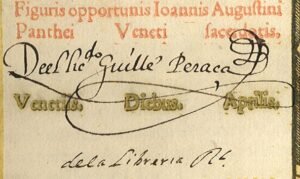 Figuris opportunis Ioannis Augustini
Panthei Veneti sacerdotis.
Guillē Peraça
Venetiis. Diebus. Aprilis.
de la Libreria Rˡ.